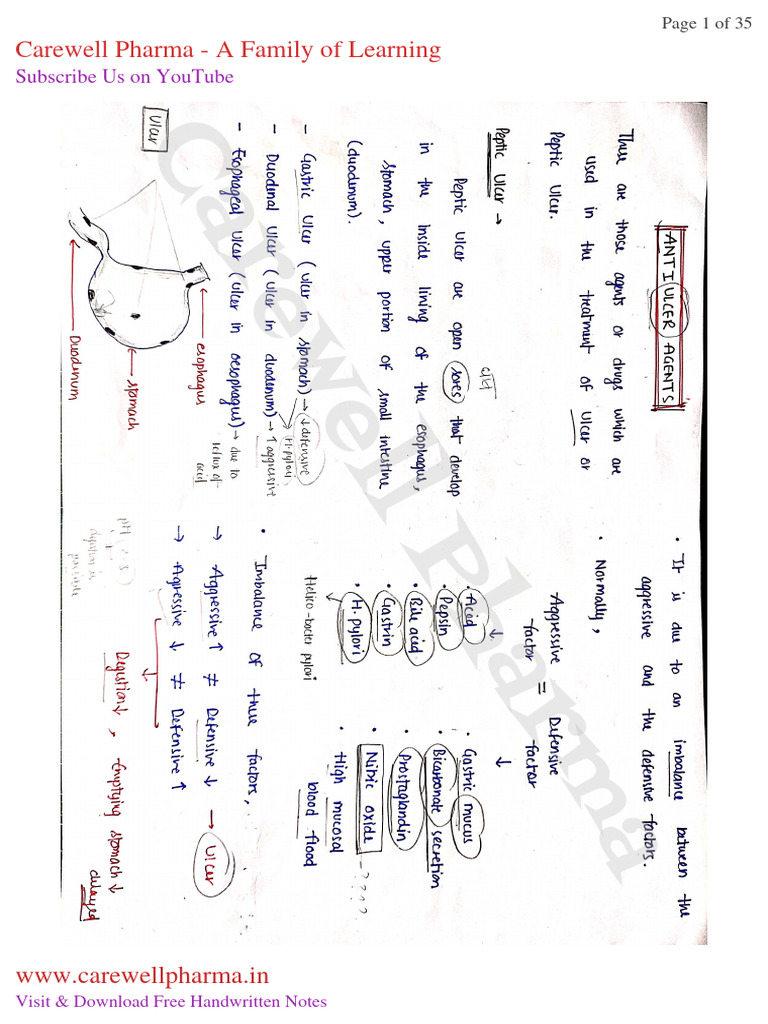 Page 1 of 35
Carewell Pharma - A Family of Learning
Subscribe Us on YouTube
ANTI ULCER AGENTS
These are those agents or drugs which are
used in the treatment of Ulcer or
Peptic Ulcer.
Peptic Ulcer →
Peptic Ulcer are open sores that develop
in the inside lining of the esophagus,
stomach, upper portion of small intestine
(duodinum).
- Gastric Ulcer (Ulcer in stomach) → ↓ defensive
H. pylori
- Duodinal Ulcer (Ulcer in duodenum) → ↑ aggressive
- Esophageal Ulcer (Ulcer in oesophagus) → due to
reflux of
acid
Ulcer
esophagus
stomach
Duodenum
• It is due to an imbalance between the
aggressive and the defensive factors.
• Normally,
Aggressive = Defensive
factor factor
↓ ↓
• Acid • Gastric mucus
• Pepsin • Bicarbonate secretion
• Bile acid • Prostaglandin
• Gastrin • Nitric oxide - ????
• H. pylori • High mucosal
blood flood
Helico-bacter pylori
• Imbalance of these factors,
→ Aggressive ↑ ≠ Defensive ↓ → Ulcer
→ Agressive ↓ ≠ Defensive ↑
pH (2-3)
digestion is
possible
Digestion ↓, Emptying stomach ↓
delayed
Carewell Pharma
www.carewellpharma.in
Visit & Download Free Handwritten Notes